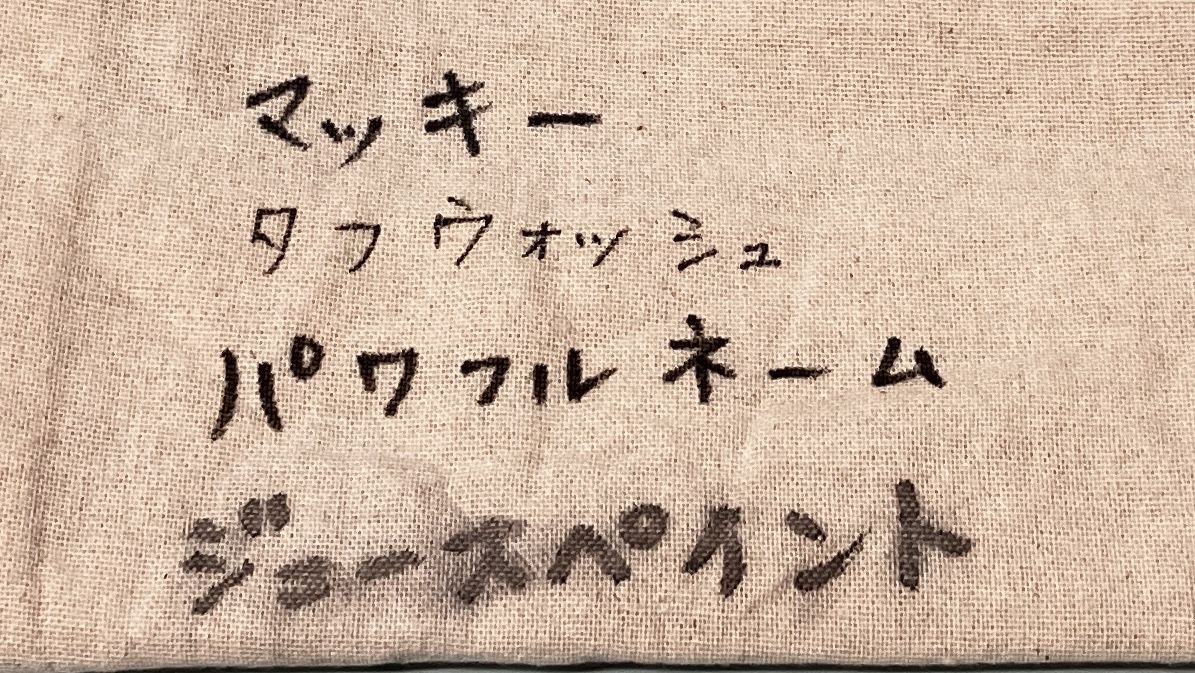 マッキー
タフウォッシュ
パワフルネーム
ジュースペイント